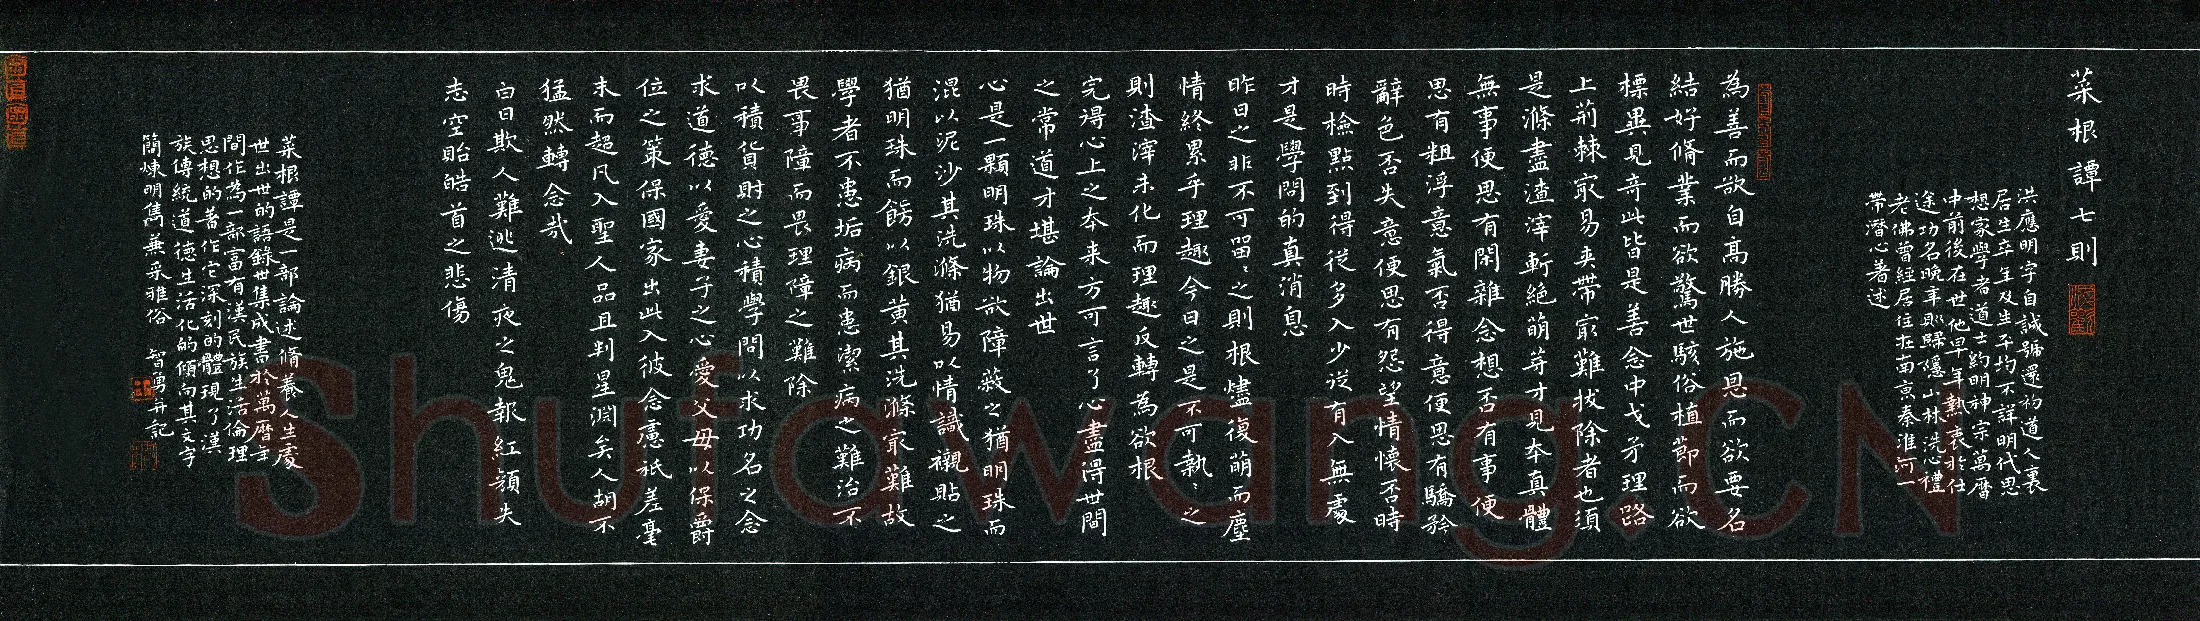 菜根譚七則
洪應明字自誠號還初道人裏
居生卒年及生平均不詳明代思
想家學者道士約明神宗萬曆
中前後在世他早年熱衷於仕
途功名晚年耶歸隱山林洗心禮
老佛曾經居住在南京秦淮河一
帶潛心著述
為善而欲自高勝人施恩而欲要名
結好脩業而欲驚世駭俗植節而欲
標異見奇此皆是善念中戈矛理路
上荊棘家易夾帶家難拔除者也須
是滌盡渣滓斬絕萌芽才見本真體
無事便思有閑雜念想否有事便
思有粗浮意氣否得意便思有驕矜
辭色否失意便思有怨望情懷否時
時檢點到得從多入少從有入無處
才是學問的真消息
昨日之非不可留留之則根燼復萌而塵
情終累乎理趣今日之是不可執執之
則渣滓未化而理趣反轉為欲根
完得心上之本来方可言了心盡得世間
之常道才堪論出世
心是一顆明珠以物欲障蔽之猶明珠而
混以泥沙其洗滌猶易以情識襯貼之
猶明珠而飾以銀黃其洗滌家難故
學者不患垢病而患潔病之難治不
畏事障而畏理障之難除
以積貨財之心積學問以求功名之念
求道德以愛妻子之心愛父母以保爵
位之策保國家出此入彼念慮祇差毫
末而超凡入聖人品且判星淵矣人胡不
猛然轉念哉
白日欺人難逃清夜之鬼報紅顏失
志空貽皓首之悲傷
菜根譚是一部論述脩養人生處
世出世的語錄世集成書於萬曆年
間作為一部富有漢民族生活倫理
思想的著作它深刻的體現了漢
族傳統道德生活化的傾向其文字
簡煉明雋兼采雅俗 智勇并記
Shufawang.CN